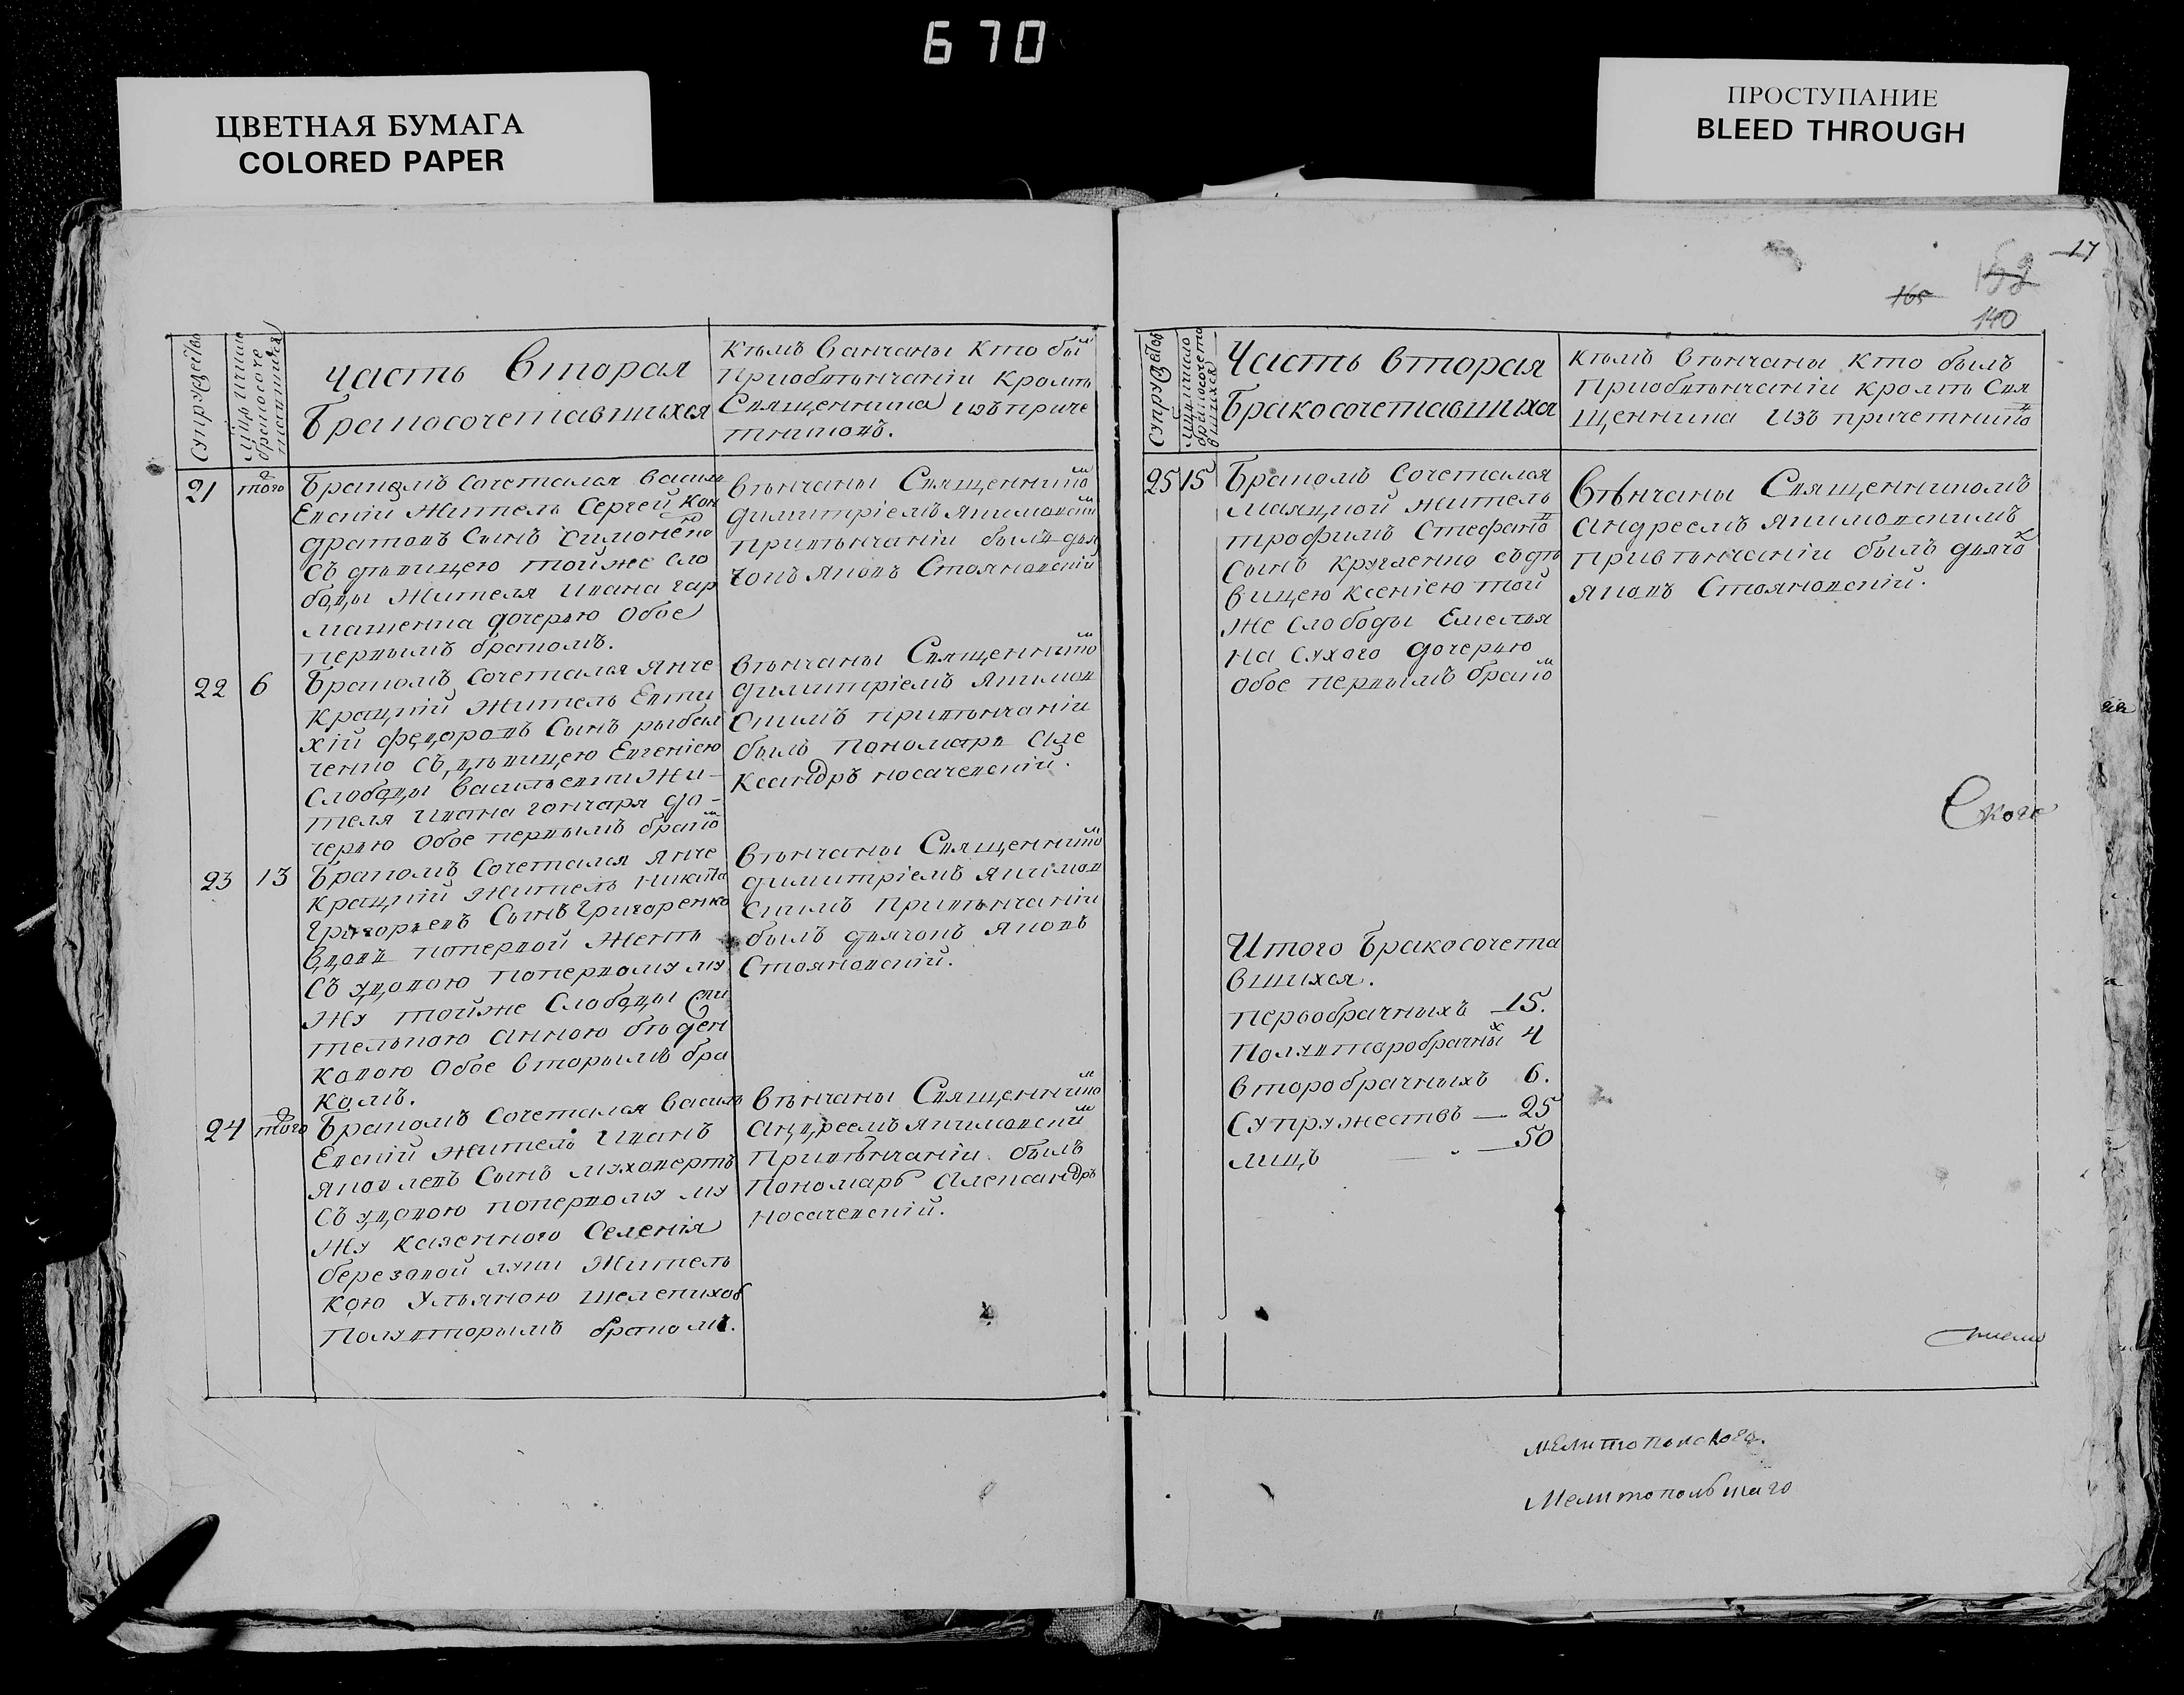 670
ЦВЕТНАЯ БУМАГА
COLORED PAPER
ПРОСТУПАНИЕ
BLEED THROUGH
17
152
165
140
Супружествъ
Мцъ и число
бракосоче
тавшихся
Часть вторая
Бракосочетавшихся
Кѣмъ Ванчаны Кто был
Приобвѣнчаніи Кромѣ
Священника изъ приче
тниковъ.
21 того
Бракомъ Сочетался Василь
Евскій Житель Сергей Кон
дратовъ Сынъ Симоненко
Съ дѣвицею тойже сло
боды Жителя Ивана гар
машенка дочерью Обое
первымъ бракомъ.
Вѣнчаны Священником
Димитріемъ Якимовским
привѣнчаніи былъ дья
чокъ Яковъ Стояновскій
22 6
Бракомъ Сочетался Янче
кракскій Житель Евти
хій Федоровъ Сынъ рыбал
ченко Съ дѣвицею Евгеніею
Слободы Васильевки Жи-
теля Ивана гончаря до-
черью Обое первымъ браком
Вѣнчаны Священником
Димитріемъ Якимов
скимъ привѣнчаніи
былъ Пономарь Але
ксандръ Носачевскій.
23 13
Бракомъ Сочетался Янче
кракскій Житель Никита
Григорьевъ Сынъ Григоренко
Вдовъ поперво́й Женѣ
Съ удовою поперво́му му
Жу тойже Слободы жи
телькою Анною бѣлден
ковою Обое вторымъ бра
комъ.
Вѣнчаны Священником
Димитріемъ Якимов
скимъ привѣнчаніи
былъ дьячокъ Яковъ
Стояновскій.
24 того
Бракомъ Сочетался Василь
Евскій Житель Иванъ
Яковлевъ Сынъ муховертъ
Съ удовою попервому му
Жу казенного Селенія
березовой луки Житель
кою Ульяною шелепихов
Полувторымъ бракомъ.
Вѣнчаны Священником
Андреемъ Якимовским
Привѣнчаніи былъ
Пономарь Александръ
Носачевскій.
Супружествъ
Мцъ и число
бракосочета
вшихся
Часть вторая
Бракосочетавшихся
Кѣмъ вѣнчаны Кто былъ
Приобвѣнчаніи кромѣ Свя
щенника изъ причетников
25 15
Бракомъ Сочетался
Маяцкой житель
трофимъ Стефанов
Сынъ кругленко съ дѣ
вицею Ксеніею той
же слободы Емелья
на сухаго дочерью
Обое первымъ браком
Вѣнчаны Священникомъ
Андреемъ Якимовскимъ
привѣнчаніи былъ дьячок
Яковъ Стояновскій.
Скаго
Итого Бракосочета
вшихся.
первобрачныхъ 15.
Полувторобрачных 4
второбрачныхъ 6.
Супружествъ — 25
лицъ — 50
Мелитопольского.
Мелитопольскаго